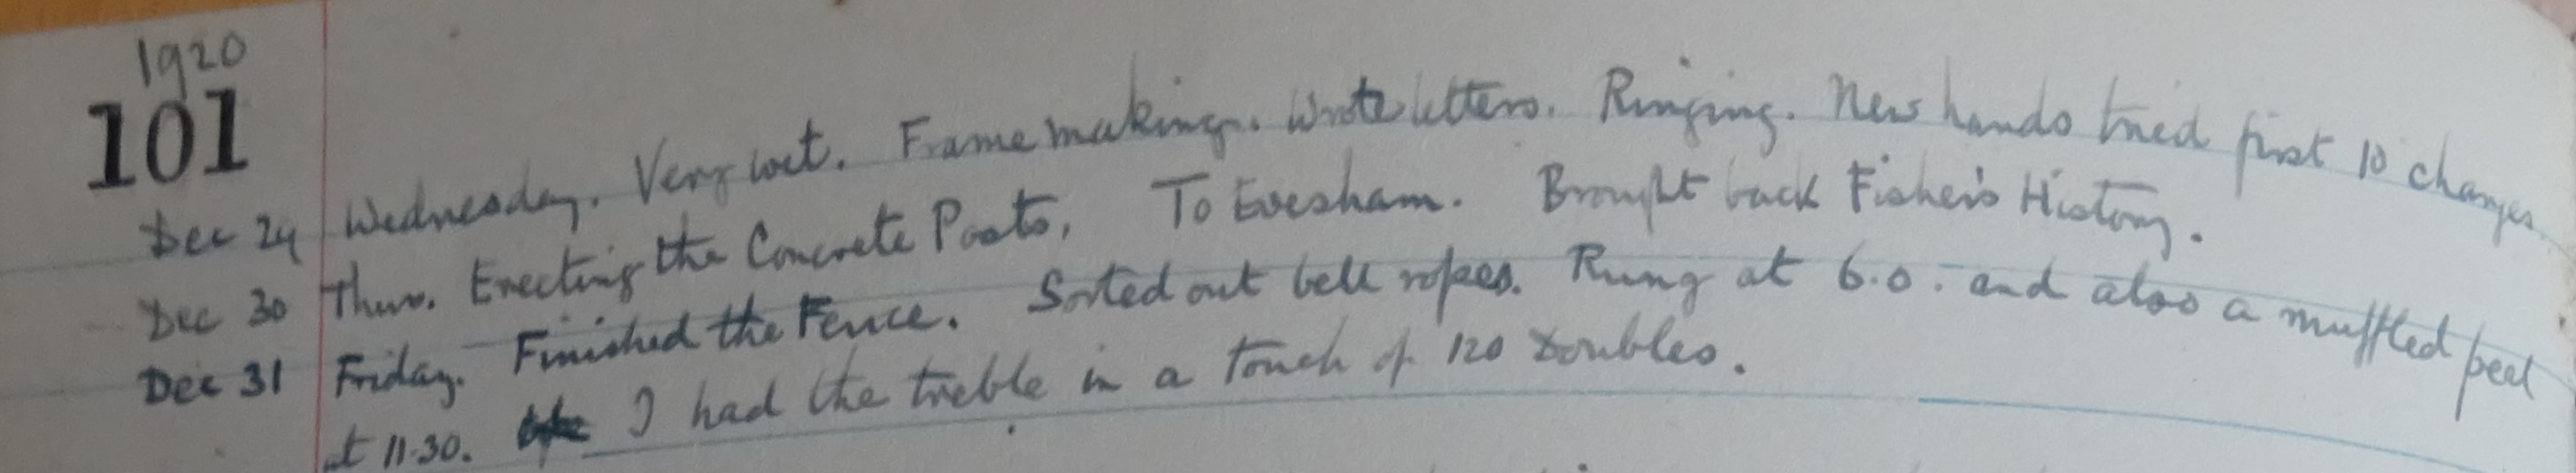 1920
101
Dec 29 Wednesday. Very wet. Frame making. Wrote letters. Ringing. New hands tried first 10 changes.
Dec 30 Thurs. Erecting the Concrete Posts. To Evesham. Brought back Fisher's History.
Dec 31 Friday. Finished the Fence. Sorted out bell ropes. Rung at 6.0. and also a muffled peel
at 11.30. I had the treble in a touch of 120 Doubles.